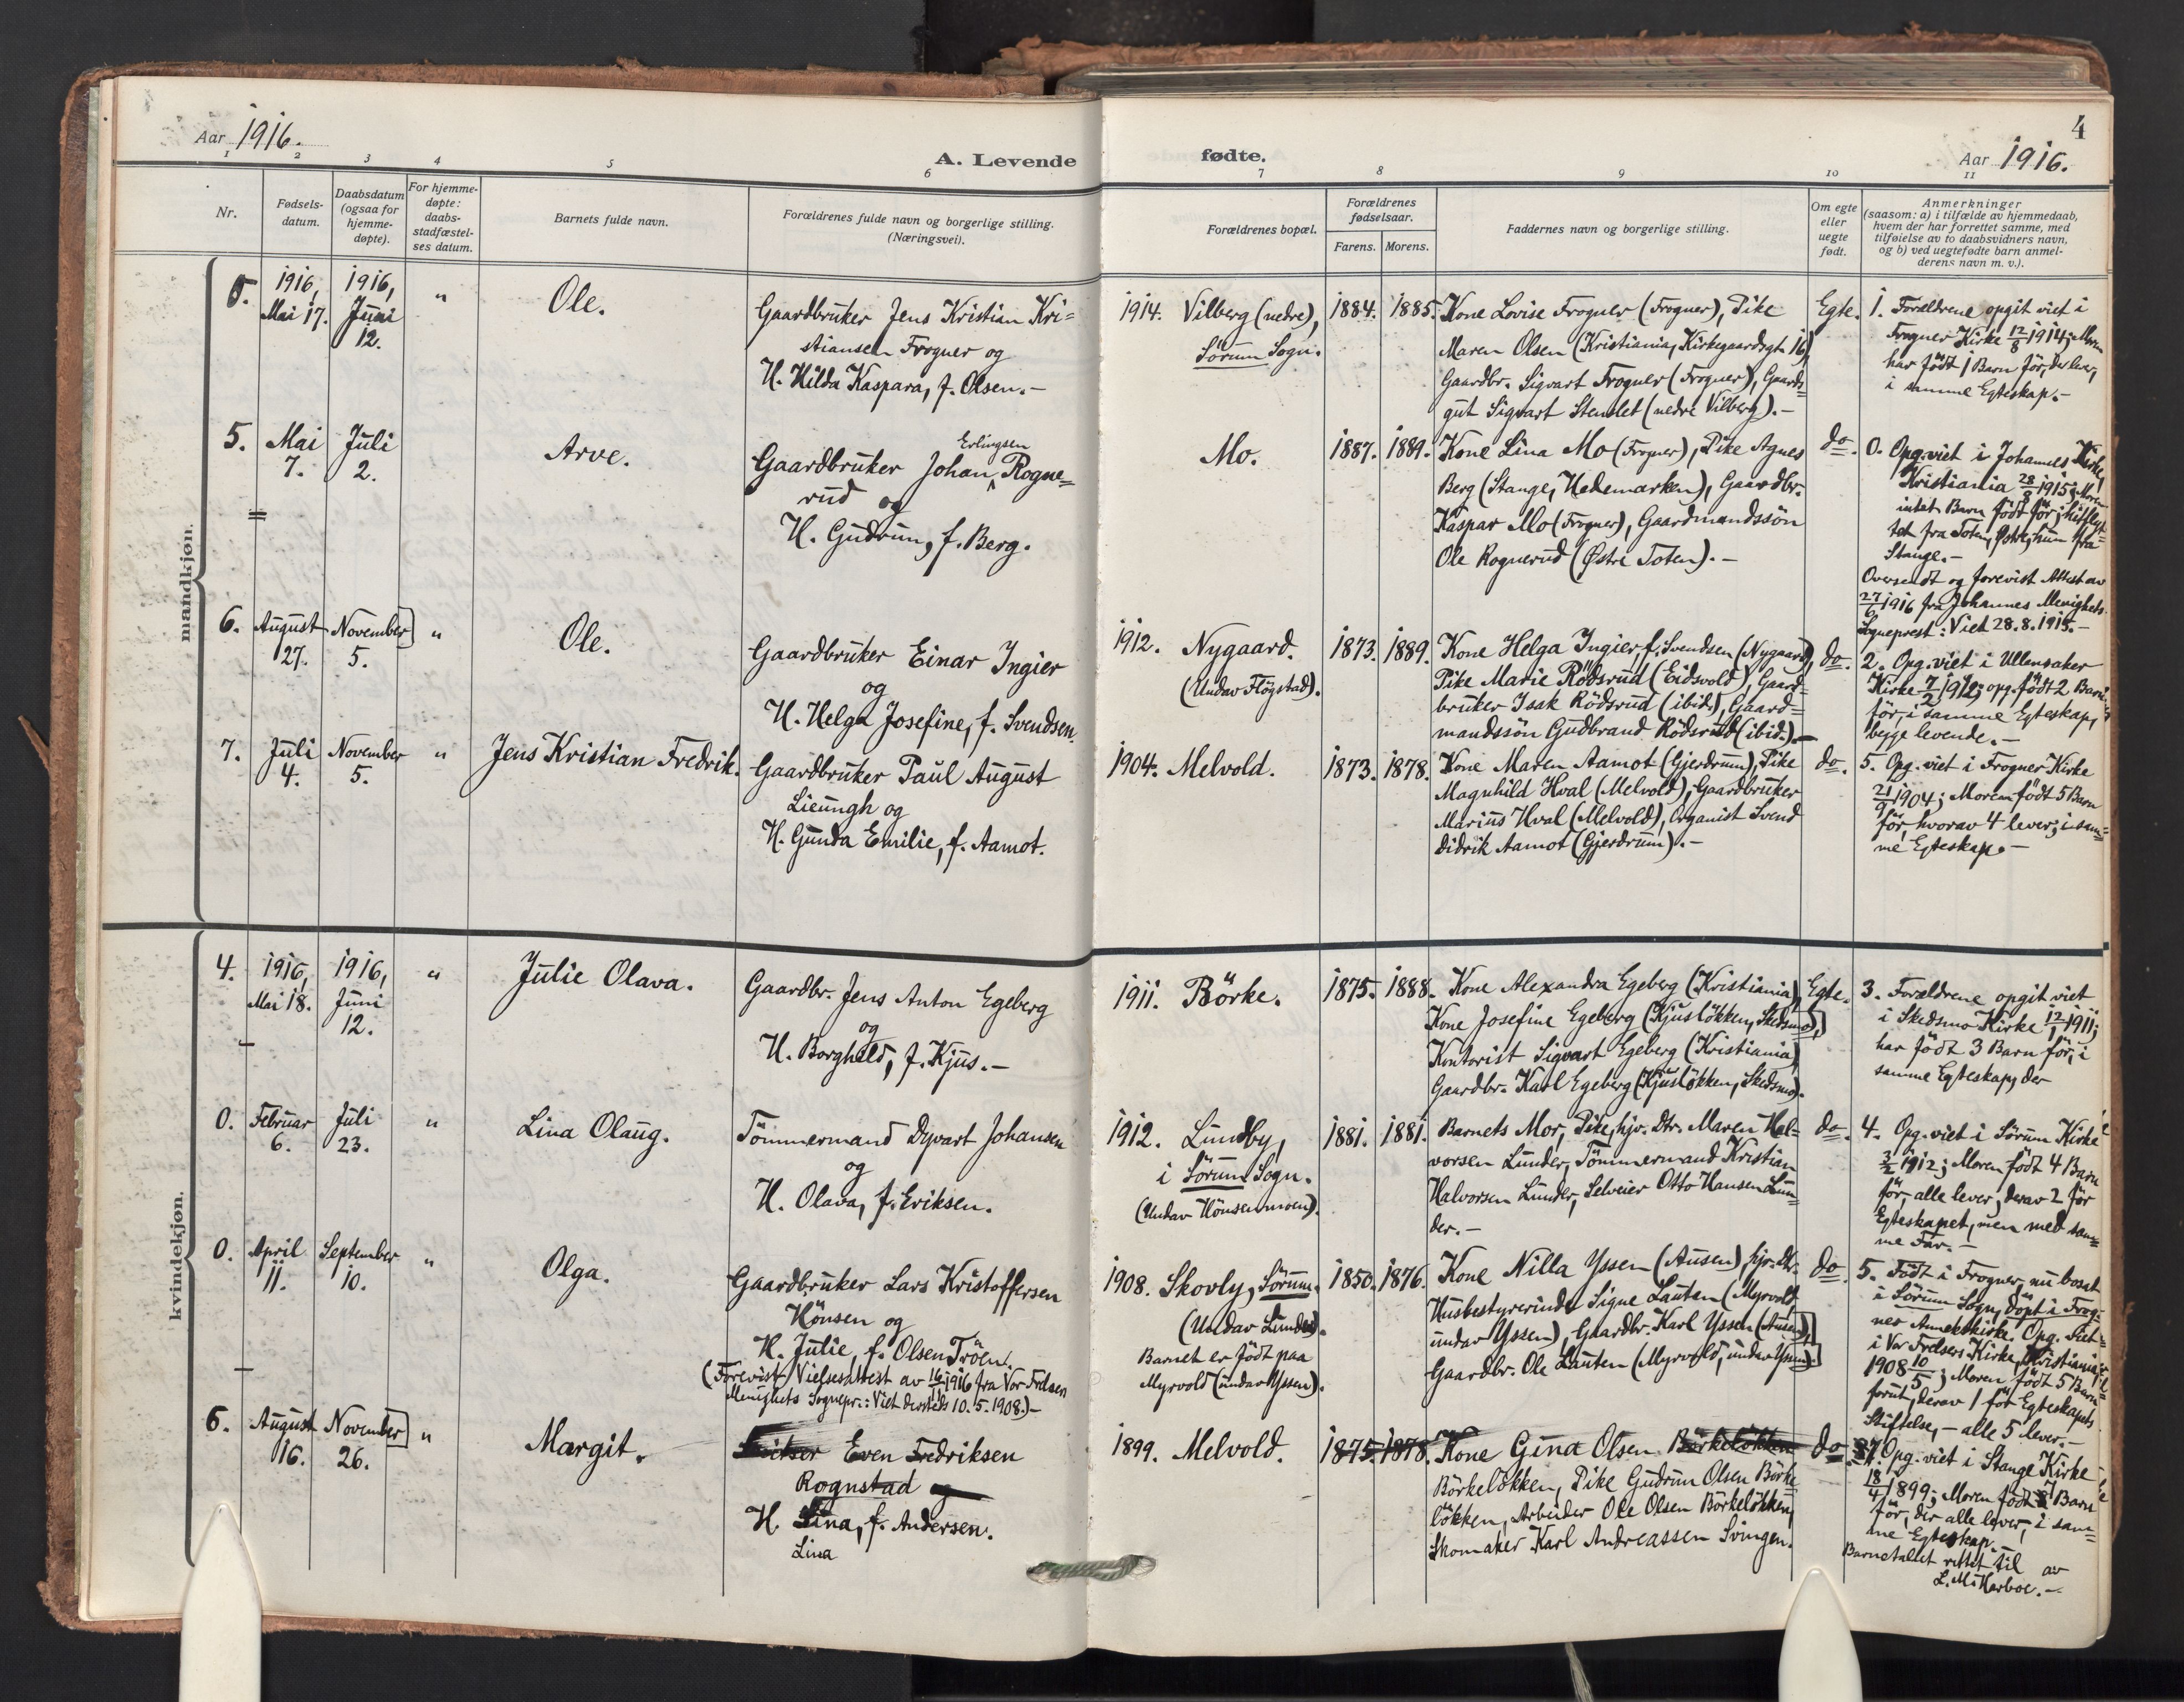 Aar 1916.
A. Levende
fødte.
4
Aar 1916.
1 2 3 4 5 6 7 8 9 10 11
Nr.
Fødsels-
datum.
Daabsdatum
(ogsaa for
hjemme-
døpte).
For hjemme-
døpte:
daabs-
stadfæstel-
ses datum.
Barnets fulde navn.
Forældrenes fulde navn og borgerlige stilling.
(Næringsvei).
Forældrenes bopæl.
Forældrenes
fødselsaar.
Farens. Morens.
Faddernes navn og borgerlige stilling.
Om egte
eller
uegte
født.
Anmerkninger
(saasom: a) i tilfælde av hjemmedaab,
hvem der har forrettet samme, med
tilføielse av to daabsvidners navn,
og b) ved uegtefødte barn anmel-
derens navn m. v.).
mandkjøn.
0.
1916,
Mai 17.
1916,
Juni
12.
"
Ole.
Gaardbruker Jens Kristian Kri=
stiansen Frogner og
H. Hilda Kaspara, f. Olsen.-
1914. Vilberg (nedre),
Sörum Sogn.
1884. 1885.
Kone Lovise Frogner (Frogner), Pike
Maren Olsen (Kristiania, Kirkegaardsgt. 16),
Gaardbr. Sigvart Frogner (Frogner), Gaards=
gut Sigvart Stenslet (nedre Vilberg).-
Egte.
1. Forældrene opgit viet i
Frogner Kirke 12/8 1914; Moren
har födt 1 Barn för, der lever,
i samme Egteskap.-
5.
Mai
7.
Juli
2.
Arve.
Erlingsen
Gaardbruker Johan Rogne=
rud og
H. Gudrun, f. Berg.
Mo.
1887. 1889.
Kone Lina Mo (Frogner), Pike Agnes
Berg (Stange, Hedemarken), Gaardbr.
Kaspar Mo (Frogner), Gaardmandssön
Ole Rognerud (Østre Toten).-
do.
0. Opg. viet i Johannes Kirke,
Kristiania 28/8 1915; Moren
intet Barn födt för; hitflyt=
tet fra Toten, Østre, hun fra
Stange.-
Oversendt og forevist Attest av
27/6 1916 fra Johannes Menigheds
Sogneprest: Viet 28.8.1915.-
6.
August
27.
November
5.
"
Ole.
Gaardbruker Einar Ingier
og
H. Helga Josefine, f. Svendsen.
1912. Nygaard.
(Undav Flögstad).
1873. 1889.
Kone Helga Ingier f. Svendsen (Nygaard),
Pike Marie Rödsrud (Eidsvold), Gaard=
bruker Isak Rödsrud (ibid.), Gaard=
mandssön Gudbrand Rödsrud (ibid.).-
do.
2. Opg. viet i Ullensaker
Kirke 7/2 1912; opg. födt 2 Barn
för, i samme Egteskap,
begge levende.-
7.
Juli
4.
November
5.
"
Jens Kristian Fredrik.
Gaardbruker Paul August
Lieungh og
H. Gunda Emilie, f. Aamot.
1904. Melvold.
1873. 1878.
Kone Maren Aamot (Gjerdrum), Pike
Magnhild Hval (Melvold), Gaardbruker
Marius Hval (Melvold), Organist Svend
Didrik Aamot (Gjerdrum).-
do.
5. Opg. viet i Frogner Kirke
21/9 1904; Moren födt 5 Barn
för, hvorav 4 lever; i sam=
me Egteskap.-
kvindekjøn.
4.
1916,
Mai 18.
1916,
Juni
12.
"
Julie Olava.
Gaardbr. Jens Anton Egeberg
og
H. Borghild, f. Kjus.-
1911. Börke.
1875. 1888.
Kone Alexandra Egeberg (Kristiania),
Kone Josefine Egeberg (Kjuslökken, Skedsmo),
Kontorist Sigvart Egeberg (Kristiania),
Gaardbr. Karl Egeberg (Kjuslökken, Skedsmo).
Egte.
3. Forældrene opgit viet
i Skedsmo Kirke 12/1 1911;
har födt 3 Barn för, i
samme Egteskap, der
0.
Februar
6.
Juli
23.
"
Lina Olaug.
Tömmermand Dyvart Johansen
og
H. Olava, f. Eriksen.
1912. Lundby,
i Sörum Sogn.
(Undav Hönsenmoen).
1881. 1881.
Barnets Mor, Pike, hjv. Dtr. Maren Hal=
vorsen Lunder, Tömmermand Kristian
Halvorsen Lunder, Selveier Otto Hansen Lun=
der.-
do.
4. Opg. viet i Sörum Kirke
3/2 1912; Moren födt 4 Barn
för, alle lever, derav 2 för
Egteskapet, men med sam=
me Far.-
0.
April
11.
September
10.
"
Olga.
Gaardbruker Lars Kristoffersen
Hönsen og
H. Julie, f. Olsen Tröen.
(Forevist Vielsesattest av 16/9 1916 fra Vor Frelsers
Menigheds Sognepr.: Viet dersteds 10.5.1908.)-
1908. Skovly, Sörum.
(Undav Lunder).
Barnet er födt paa
Myrvold (undav Yssen).
1850. 1876.
Kone Nilla Yssen (Ausen), hjv. Dtr.
Husbestyrerinde Signe Lauten (Myrvold,
undav Yssen), Gaardbr. Karl Yssen (Ausen),
Gaardbr. Ole Lauten (Myrvold, undav Yssen).
do.
5. Födt i Frogner, nu bosat
i Sörum Sogn, döpt i Frog=
ner Annekskirke. Opg. viet
i Vor Frelsers Kirke, Kristiania
1908 10/5; Moren födt 5 Barn
forut, derav 1 för Egteskapets
Stiftelse,- alle 5 lever.-
6.
August
16.
November
26.
"
Margit.
Even Fredriksen
Rognstad og
H. Lina, f. Andersen.
Lina
1899. Melvold.
1875. 1878.
Kone Gina Olsen Börkelökken
Börkelökken, Pike Gudrun Olsen Börke
lökken, Arbeider Ole Olsen Börkelökken,
Skomaker Karl Andreassen Svingen.
do.
7. Opg. viet i Stange Kirke
18/4 1899; Moren födt 7 Barn
för, der alle lever, i sam=
me Egteskap.-
Barnetallet rettet til av
L. M. Harboe.-